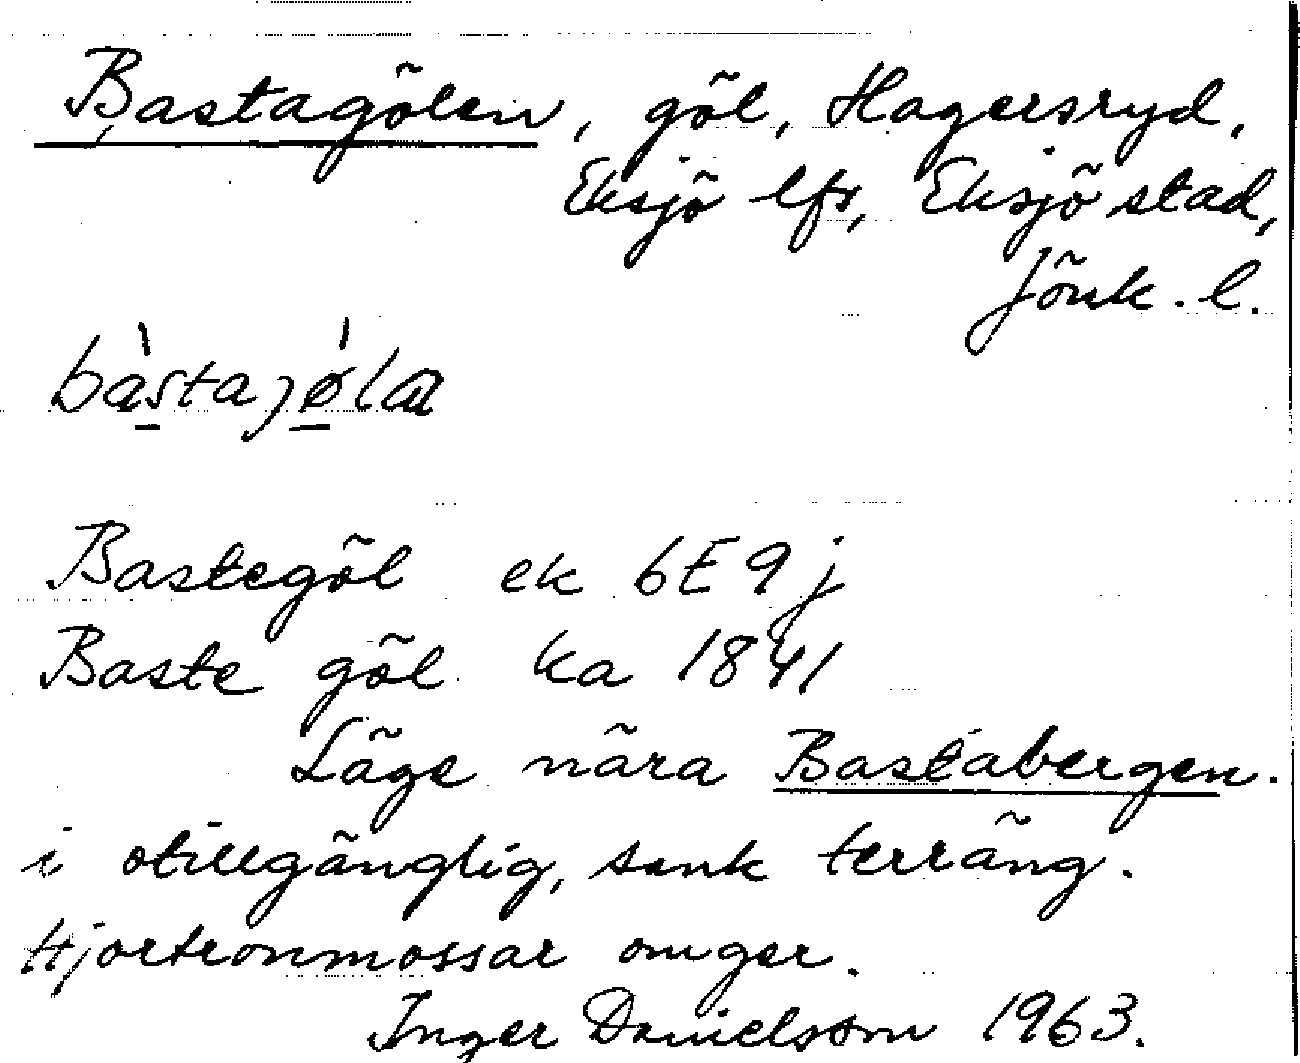 Bastagölen, göl, Hagersryd,
Eksjö lfs, Eksjö stad,
Jönk. l.
bàstajǿla
Bastegöl ek 6E9j
Baste göl ka 1841
Läge nära Bastabergen.
i otillgänglig, sank terräng.
Hjortronmossar omger.
Inger Danielsson 1963.